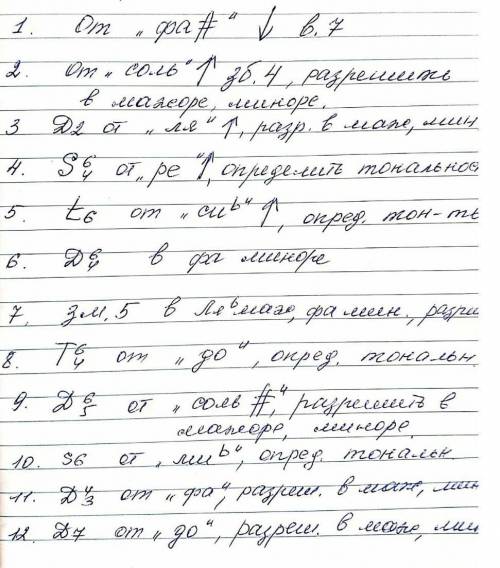 1. От „фа#“ ↓ в.7
2. От „соль“ ↑ зб.4, разрешить
в мажоре, миноре.
3 D2 от „ля“ ↑, разр. в маж, мин
4. S6/4 от „ре“ ↑, определить тональнос
5. t6 от „сиb“ ↑, опред. тон-ть
6. D6/4 в фа миноре
7. Зм.5 в Ляb маж, фа мин., разри
8. T6/4 от „до“, опред. тональн.
9. D6/5 от „соль #“, разрешить в
мажоре, миноре.
10. S6 от „миb“, опред. тональн.
11. D4/3 от „фа“, разреш. в маж, мин
12. D7 от „до“, разреш. в маж, мин